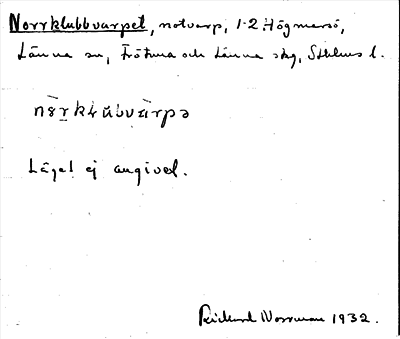 Norrklubbvarpet, notvarp, 1-2 Högmarsö,
Länna sn, Frötuna och Länna skg, Sthlms l.
nɔrklŭbvarpə
Läget ej angivet.
Rickard Norrman 1932.